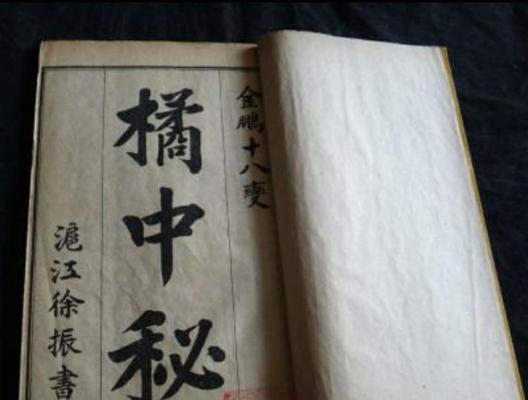 金鹏十八变
橘中秘
滬江徐振書